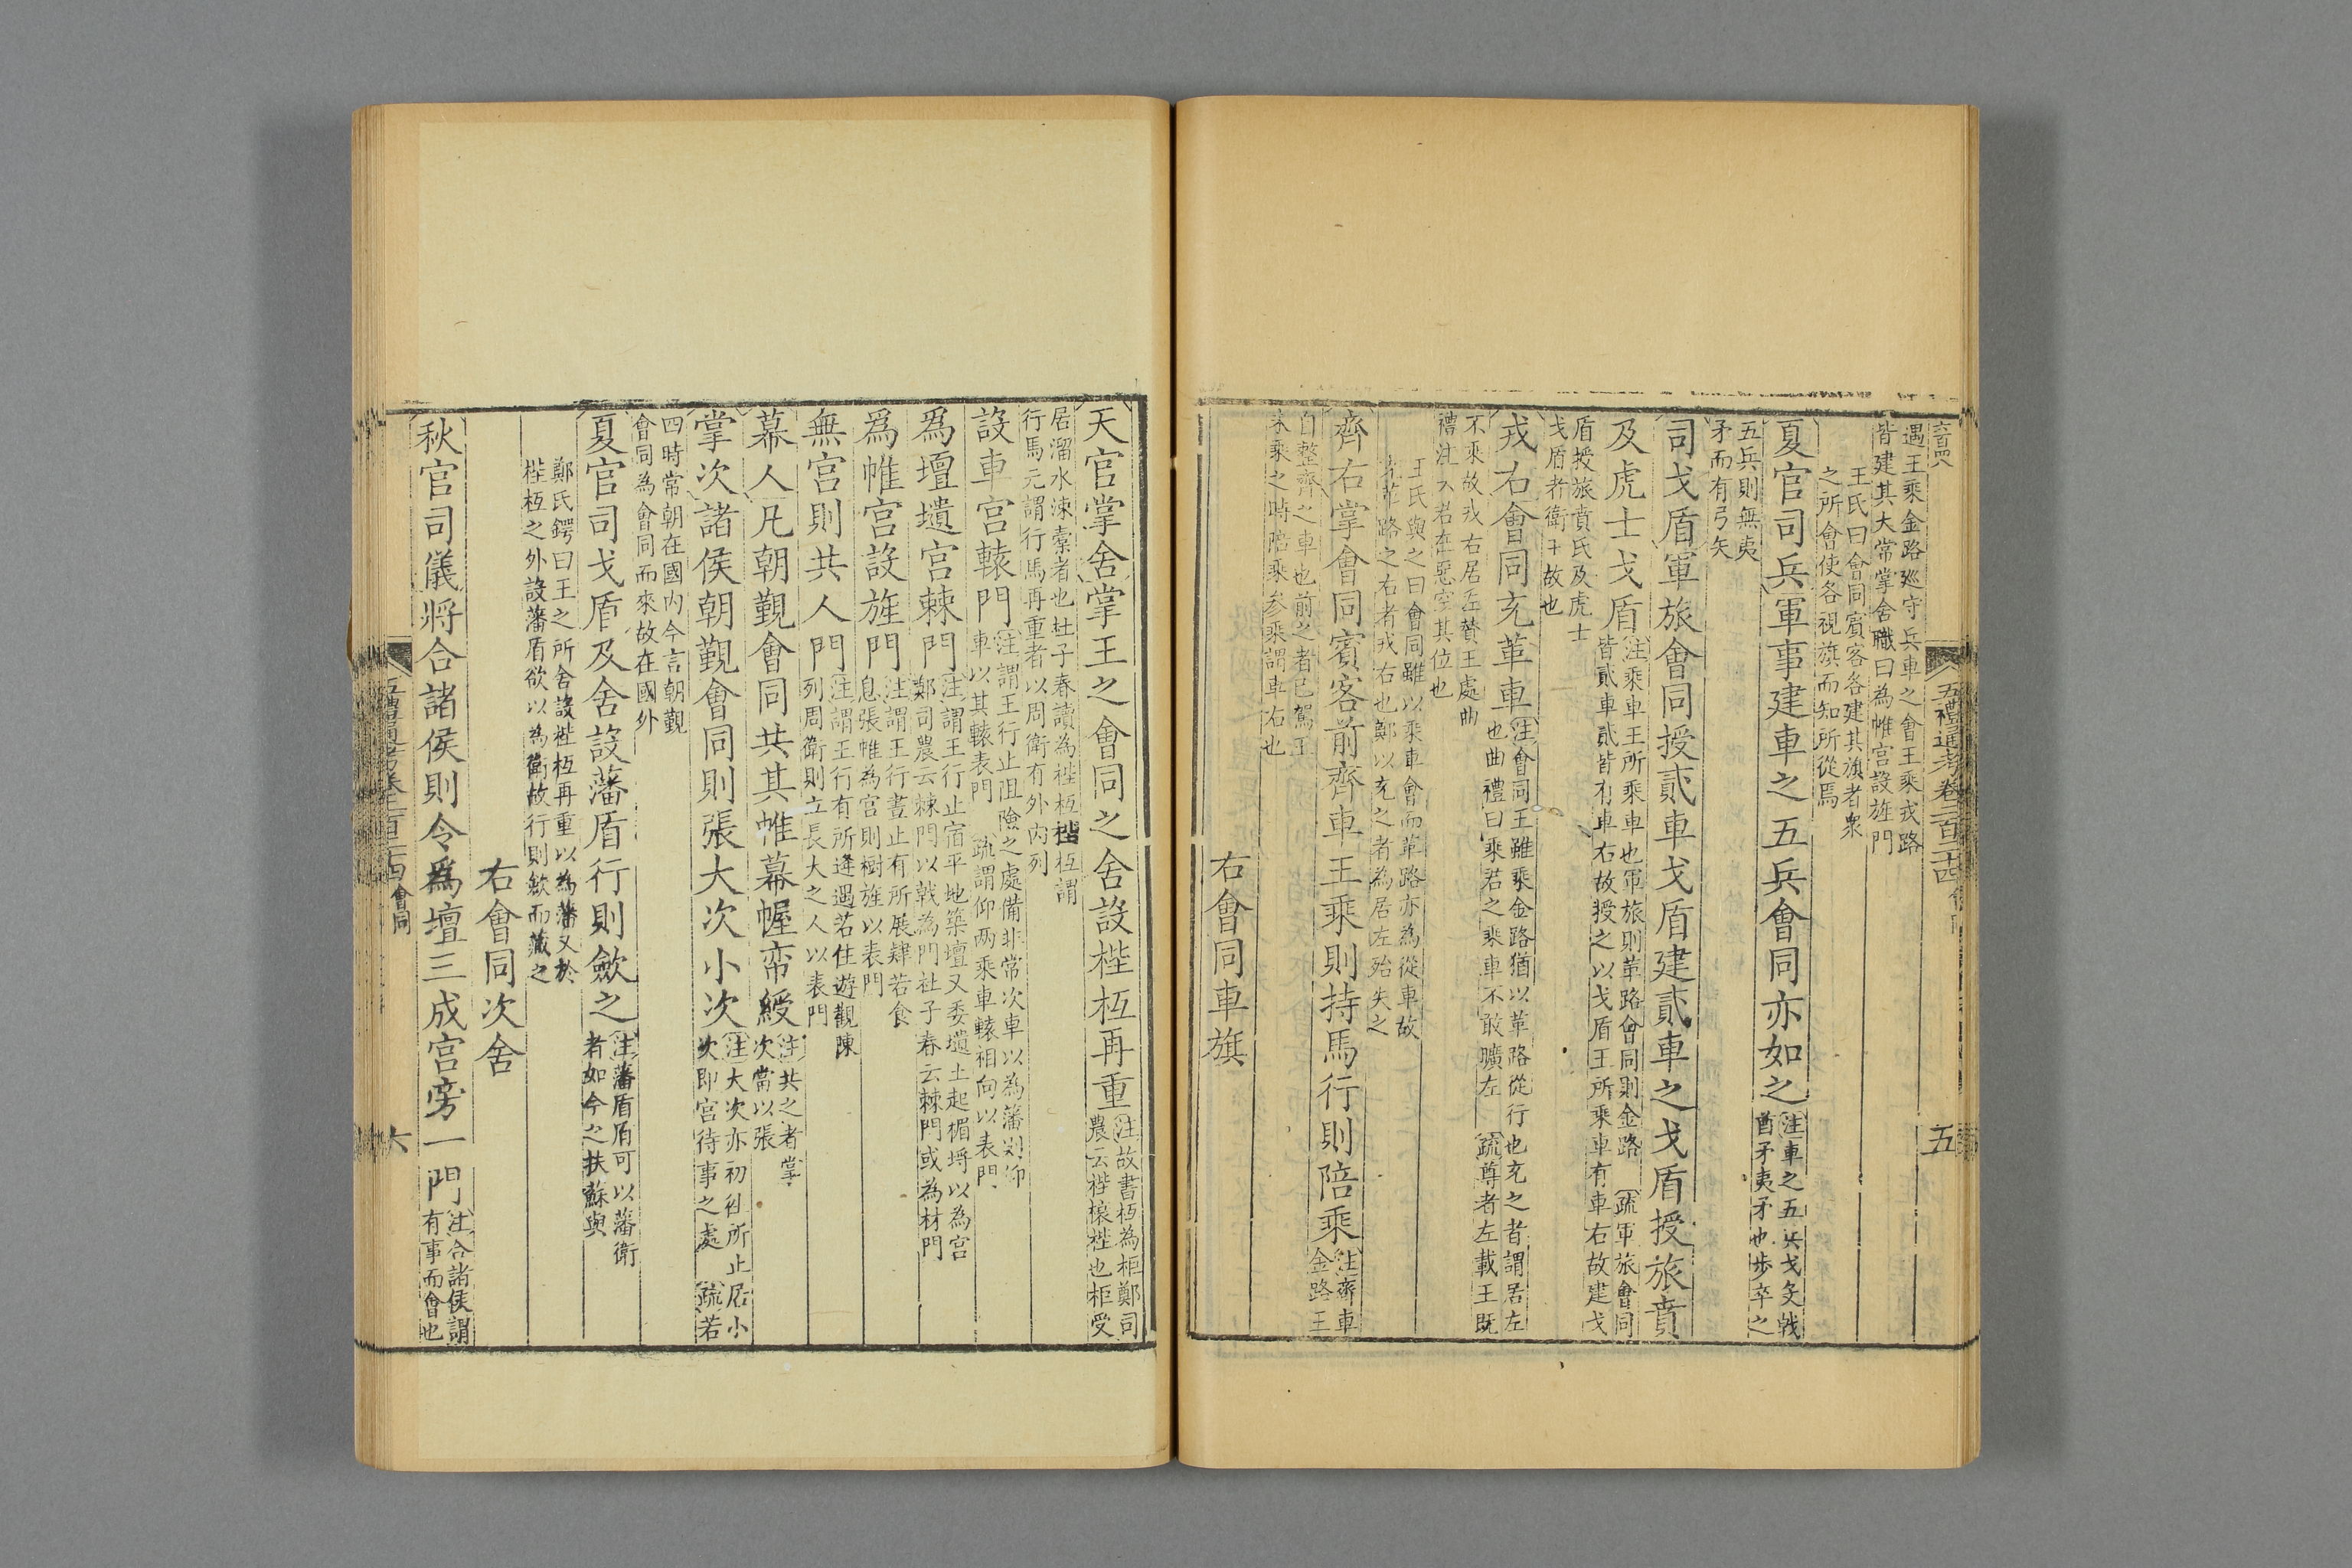 六百四八
五禮通考卷二百二十四 會同
五
遇王乘金路廵守兵車之會王乘戎路
皆建其大常掌舍職曰為帷宫設旌門
王氏曰會同賓客各建其旗者衆
之所會使各視旗而知所從焉
夏官司兵軍事建車之五兵會同亦如之注車之五兵戈殳戟
酋矛夷矛也步卒之
五兵則無夷
矛而有弓矢
司戈盾軍旅會同授貳車戈盾建貳車之戈盾授旅賁
及虎士戈盾注乘車王所乘車也軍旅則革路會同則金路 疏軍旅會同
皆貳車貳皆有車右故授之以戈盾王所乘車有車右故建戈
盾授旅賁氏及虎士
戈盾者衛王故也
戎右會同充革車注會同王雖乘金路猶以革路從行也充之者謂居左
也曲禮曰乘君之乘車不敢曠左 疏尊者左載王既
不乘故戎右居左贊王處曲
禮注云君在惡空其位也
王氏與之曰會同雖以乘車會而革路亦為從車故
充革路之右者戎右也鄭以充之者為居左殆失之
齊右掌會同賓客前齊車王乘則持馬行則陪乘注齊車
金路王
自整齊之車也前之者已駕王
未乘之時陪乘參乘謂車右也
右會同車旗
天官掌舍掌王之會同之舍設梐枑再重注故書枑為柜鄭司
農云梐榱梐也柜受
居溜水涑橐者也杜子春讀為梐枑梐枑謂
行馬元謂行馬再重者以周衛有外内列
設車宫轅門注謂王行止阻險之處備非常次車以為藩則仰
車以其轅表門 疏謂仰两乘車轅相向以表門
爲壇壝宫棘門注謂王行止宿平地築壇又委壝土起堳埒以為宫
鄭司農云棘門以戟為門杜子春云棘門或為材門
爲帷宫設旌門注謂王行晝止有所展肄若食
息張帷為宫則樹旌以表門
無宫則共人門注謂王行有所逢遇若住遊觀陳
列周衛則立長大之人以表門
幕人凡朝覲會同共其帷幕幄帟綬注共之者掌
次當以張
掌次諸侯朝覲會同則張大次小次注大次亦初往所止居小
次即宫待事之處 疏若
四時常朝在國内今言朝覲
會同為會同而來故在國外
夏官司戈盾及舍設藩盾行則斂之注藩盾盾可以藩衛
者如今之扶蘇與
鄭氏鍔曰王之所舍設梐枑再重以為藩又於
梐枑之外設藩盾欲以為衛故行則斂而藏之
右會同次舍
秋官司儀將合諸侯則令爲壇三成宫旁一門注合諸侯謂
有事而會也
五禮通考卷二百二十四 會同
六